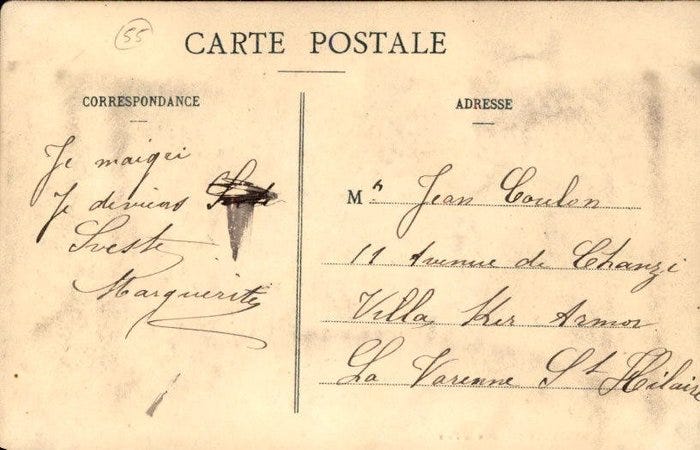 55
CARTE POSTALE
CORRESPONDANCE
ADRESSE
Je maigri
Je deviens
Sveste
Marguerite
Mr Jean Coulon
11 Avenue de Chanzi
Villa Ker Armor
La Varenne St Hilaire